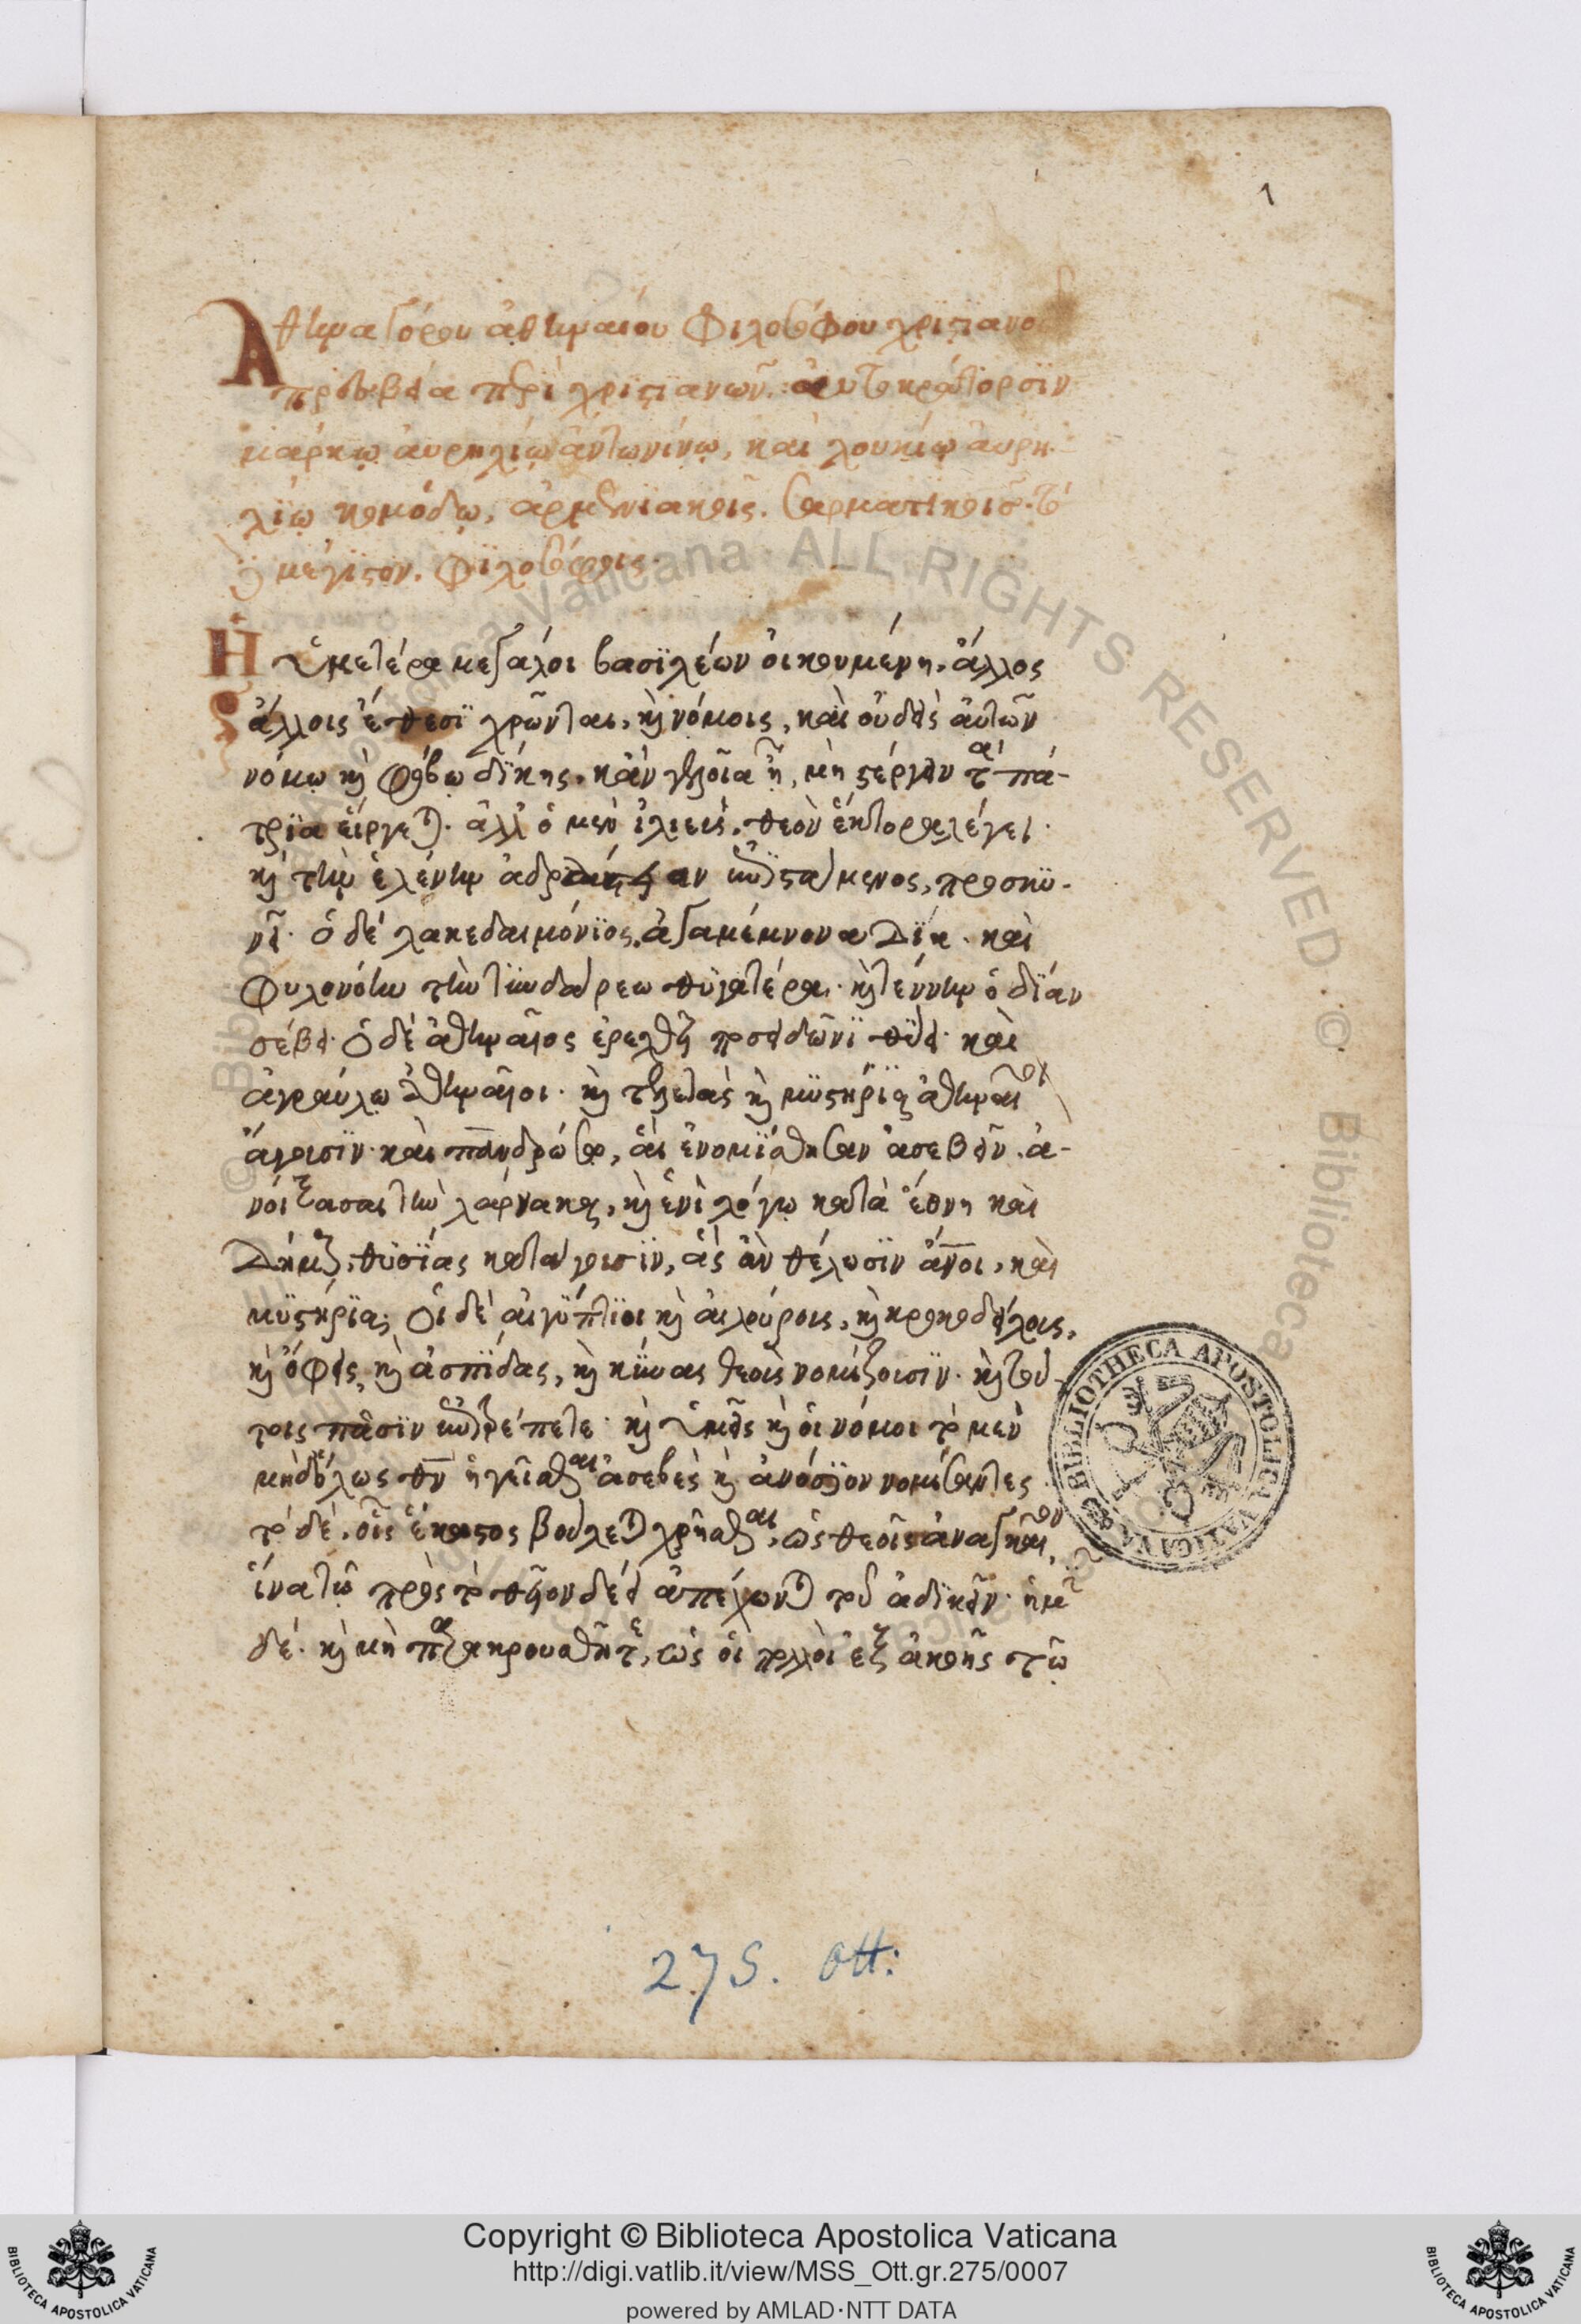 1
Ἀθηναγόρου ἀθηναίου φιλοσόφου χριστιανοῦ
πρεσβεία περὶ χριστιανῶν. αὐτοκράτορσϊν
μάρκῳ αὐρηλίῳ ἀντωνίνῳ, καὶ λουκίῳ αὐρη-
λίῳ κομόδῳ, ἀρμενϊακοῖς. σαρματικοῖς. τὸ
δὲ μέγϊστον. φϊλοσόφοις.
Ἡ ὑμετέρα μεγάλοι βασϊλέων οἰκουμένη, ἄλλος
ἄλλοις ἔθεσϊ χρῶνται, κὴ νόμοις, καὶ οὐδεὶς αὐτῶν
νόμῳ κὴ φόβῳ δίκης, κἂν γελοῖα ᾖ, μὴ στέργειν τὰ πά-
τρϊα εἴργεται. ἀλλ' ὁ μὲν ἰλιεὺς, θεὸν ἕκτορα λέγει.
κὴ τὴν ἑλένην ἀδράστειαν ἐπϊστάμενος, προσκυ-
νεῖ. ὁ δὲ λακεδαιμόνϊος, ἀγαμέμνονα Δϊα. καὶ
φυλονόην τὴν τϋνδάρεω θυγατέρα. κὴ τέννην ὁδϊὰν
σέβει. ὁ δὲ ἀθηναῖος ἐρεχθεῖ ποσειδῶνϊ θύει. καὶ
ἀγραύλῳ ἀθηναῖοι. κὴ τελετὰς κὴ μϋστήρϊα ἀθηναῖοι
ἄγουσϊν. καὶ πανδρόσῳ, αἳ ἐνομϊσθησαν ἀσεβεῖν. ἀ-
νοίξασαι τὴν λάρνακα, κὴ ἑνὶ λόγῳ κατὰ ἔθνη καὶ
Δήμους, θυσϊας κατάγουσϊν, ἃς ἂν θέλωσϊν ἄνοι, καὶ
μϋστήρϊα; Οἱ δὲ αἰγϋπτϊοι κὴ αἰλούρους, κὴ κροκοδείλους,
κὴ ὄφεις, κὴ ἀσπίδας, κὴ κϋνας θεοὺς νομίζουσϊν. κὴ τού-
τοις πᾶσϊν ἐπϊτρέπετε. κὴ ὑμεῖς κὴ οἱ νόμοι τὸ μὲν
μηδόλως θν ἡγεῖσθαι ἀσεβὲς κὴ ἀνόσϊον νομίσαντες
τὸ δὲ, οἷς ἕκαστος βούλεται χρῆσθαι, ὡς θεοῖς ἀναγκαῖον,
ἵνα τῷ πρὸς τὸ θεῖον δέει ἀπέχωνται τοῦ ἀδϊκεῖν. ἡμῖν
δέ. κὴ μὴ παρακρουσθῆτε, ὡς οἱ πολλοὶ ἐξ ἀκοῆς τῷ
BIBLIOTHECA APOSTOLICA VATICANA
275. Ott:
© Biblioteca Apostolica Vaticana · ALL RIGHTS RESERVED · © Biblioteca
Copyright © Biblioteca Apostolica Vaticana
http://digi.vatlib.it/view/MSS_Ott.gr.275/0007
powered by AMLAD·NTT DATA
BIBLIOTECA APOSTOLICA VATICANA
BIBLIOTECA APOSTOLICA VATICANA